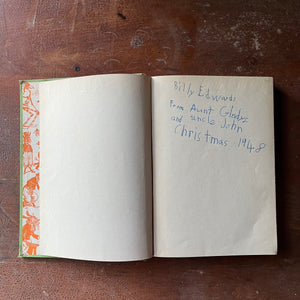 Billy Edwards
From Aunt Gladys
and uncle John
Christmas 1948